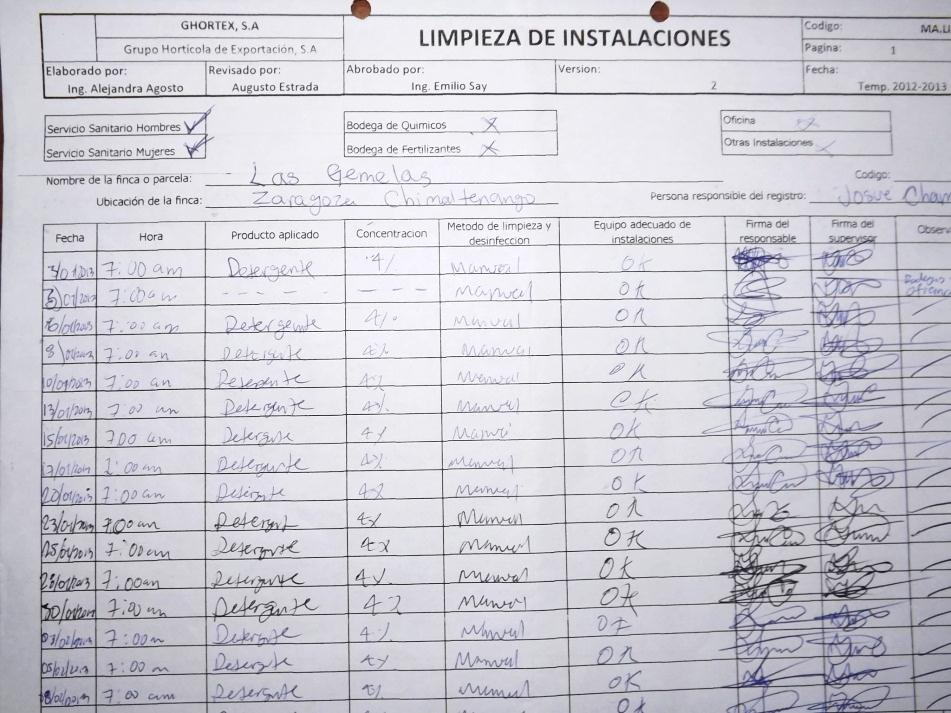 GHORTEX, S.A
Grupo Hortícola de Exportación, S.A
LIMPIEZA DE INSTALACIONES
Codigo: MA.LI
Pagina: 1
Elaborado por: Ing. Alejandra Agosto
Revisado por: Augusto Estrada
Abrobado por: Ing. Emilio Say
Version: 2
Fecha: Temp. 2012-2013
Servicio Sanitario Hombres
Servicio Sanitario Mujeres
Bodega de Quimicos X
Bodega de Fertilizantes X
Oficina
Otras Instalaciones
Nombre de la finca o parcela: Las Gemelas
Codigo:
Ubicación de la finca: Zaragoza Chimaltenango
Persona responsible del registro: Josue Cham
Fecha Hora Producto aplicado Concentracion Metodo de limpieza y desinfeccion Equipo adecuado de instalaciones Firma del responsable Firma del supervisor Observ
7:00 am Detergente 4% Manual OK
7:00 am - - - - - - - - Manual OK
7:00 am Detergente 4% Manual OK
7:00 am Detergente 4% Manual OK
10/01/2013 7:00 am Detergente 4% Manual OK
13/01/2013 7:00 am Detergente 4% Manual OK
15/01/2013 7:00 am Detergente 4% Manual OK
17/01/2013 7:00 am Detergente 4% Manual OK
20/01/2013 7:00 am Detergente 4% Manual OK
23/01/2013 7:00 am Detergent 4% Manual OK
25/01/2013 7:00 am Detergente 4% Manual OK
28/01/2013 7:00 am Detergente 4% Manual OK
30/01/2013 7:00 am Detergente 4% Manual OK
7:00 m Detergente 4% Manual OK
05/02/2013 7:00 m Detergente 4% Manual OK
08/02/2013 7:00 am Detergente 4% Manual OK
OK